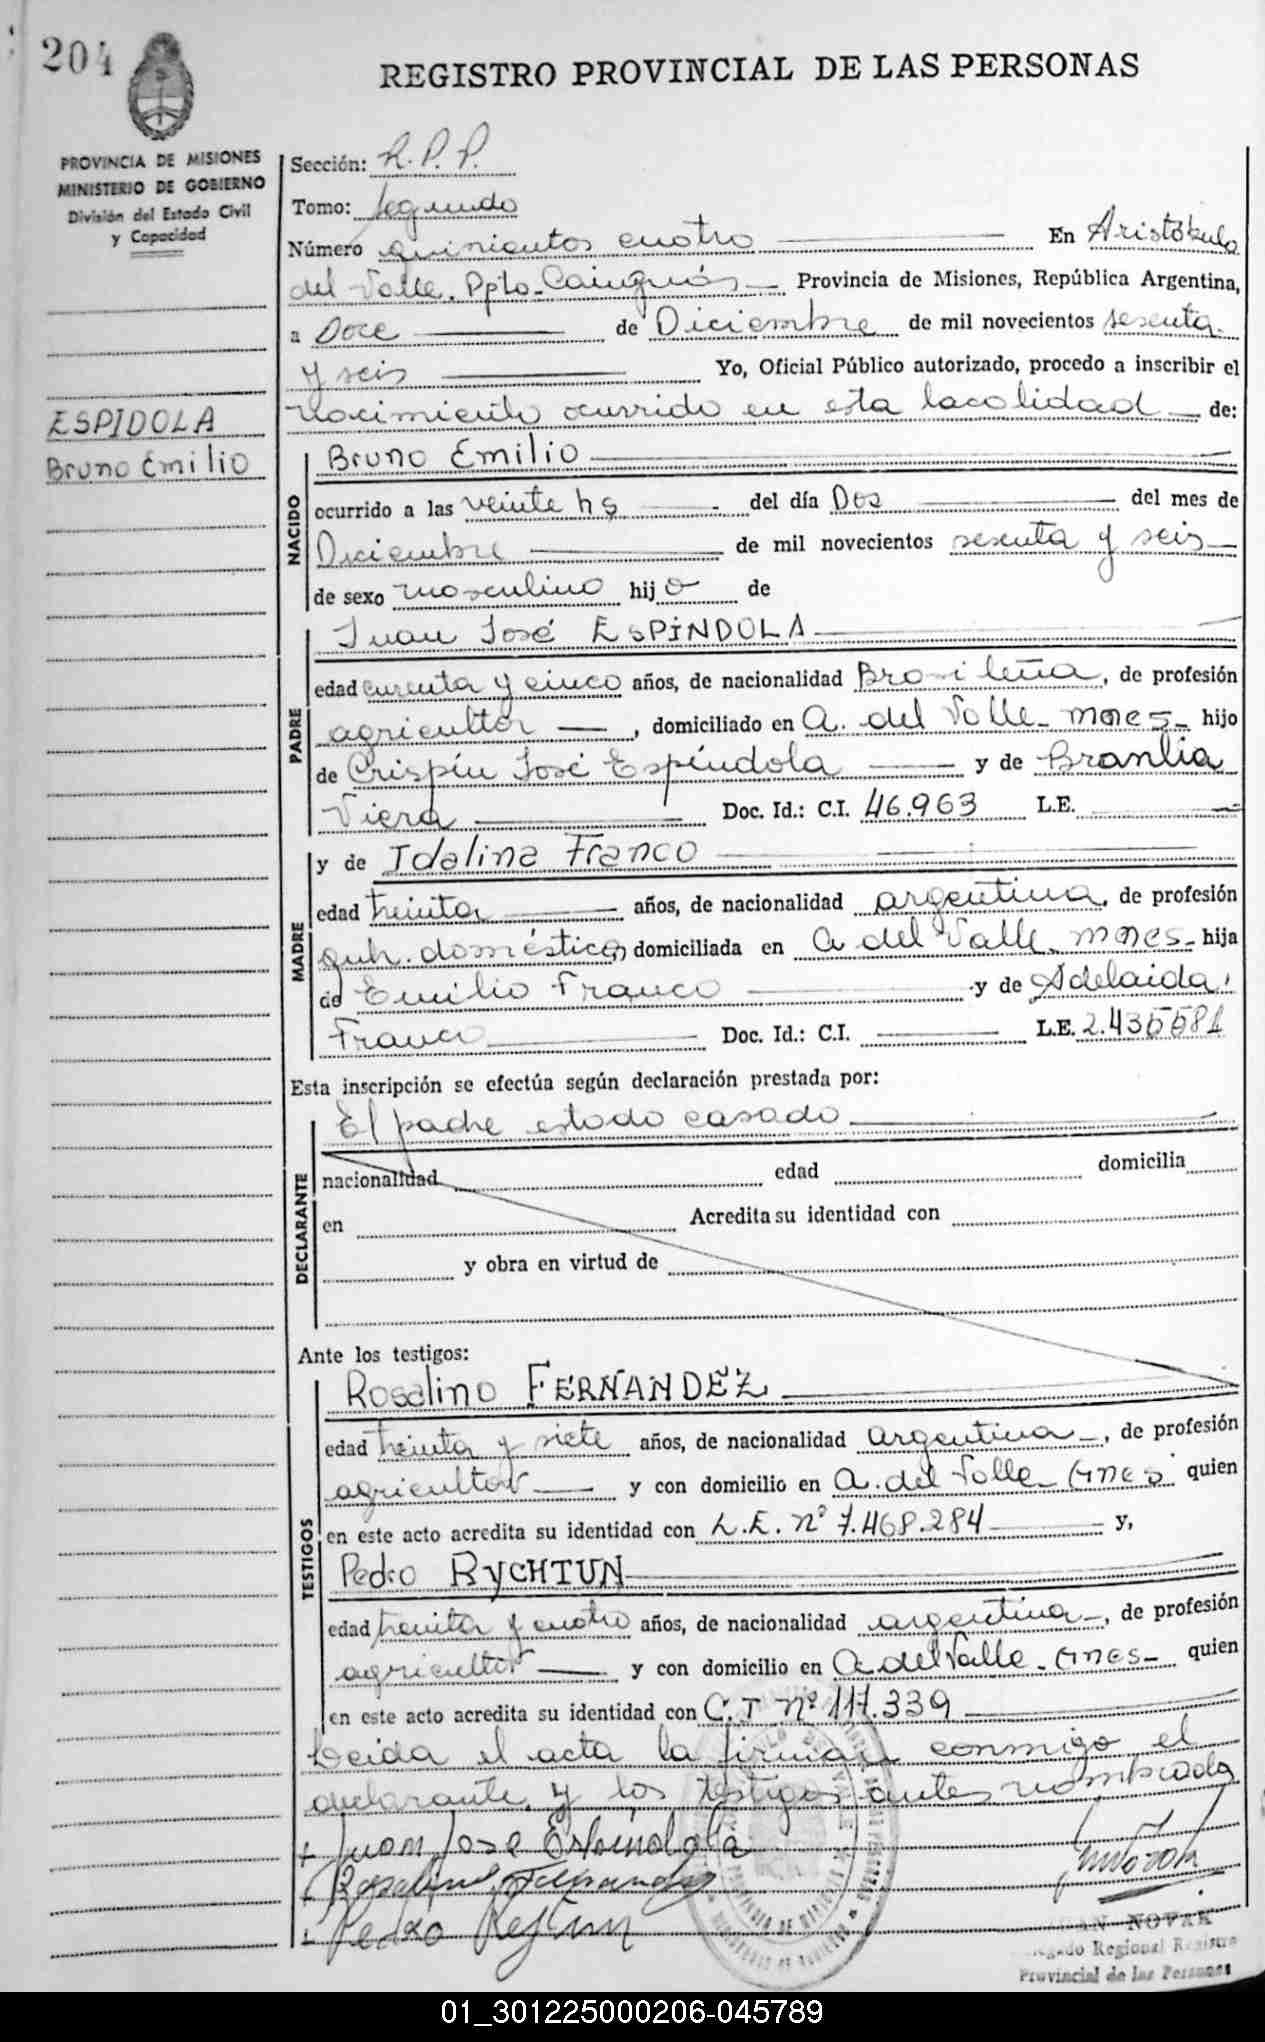 204
REGISTRO PROVINCIAL DE LAS PERSONAS
PROVINCIA DE MISIONES
MINISTERIO DE GOBIERNO
División del Estado Civil
y Capacidad
ESPIDOLA
Bruno Emilio
Sección: R.P.P.
Tomo: Segundo
Número quinientos cuatro En Aristóbulo
del Valle. Dpto. Cainguás Provincia de Misiones, República Argentina,
a Doce de Diciembre de mil novecientos sesenta
y seis Yo, Oficial Público autorizado, procedo a inscribir el
nacimiento ocurrido en esta localidad de:
NACIDO
Bruno Emilio
ocurrido a las veinte hs del día Dos del mes de
Diciembre de mil novecientos sesenta y seis
de sexo masculino hijo de
PADRE
Juan José ESPÍNDOLA
edad curenta y cinco años, de nacionalidad Brasileña, de profesión
agricultor, domiciliado en A. del Valle - mnes - hijo
de Crispín José Espíndola y de Branlia
Viera Doc. Id.: C.I. 46.963 L.E.
MADRE
y de Idalina Franco
edad treinta años, de nacionalidad argentina, de profesión
quh. doméstica, domiciliada en A del Valle. mnes - hija
de Emilio Franco y de Adelaida
Franco Doc. Id.: C.I. L.E. 2.435581
Esta inscripción se efectúa según declaración prestada por:
DECLARANTE
El padre estado casado
nacionalidad edad domicilia
en Acredita su identidad con
y obra en virtud de
Ante los testigos:
TESTIGOS
Rosalino FERNANDEZ
edad treinta y siete años, de nacionalidad argentina, de profesión
agricultor y con domicilio en A. del Valle - Mnes quien
en este acto acredita su identidad con L.E. Nº 7.468.284 y,
Pedro RYCHTUN
edad treinta y cuatro años, de nacionalidad argentina, de profesión
agricultor y con domicilio en A del Valle - Mnes - quien
en este acto acredita su identidad con C.I Nº 117.339
Leida el acta la firman conmigo el
declarante y los testigos antes nombrado
+ Juan Jose Espindola
+ Rosalino Fernandez
+ Pedro
JUAN NOVAK
Delegado Regional Registro
Provincial de las Personas
01_301225000206-045789